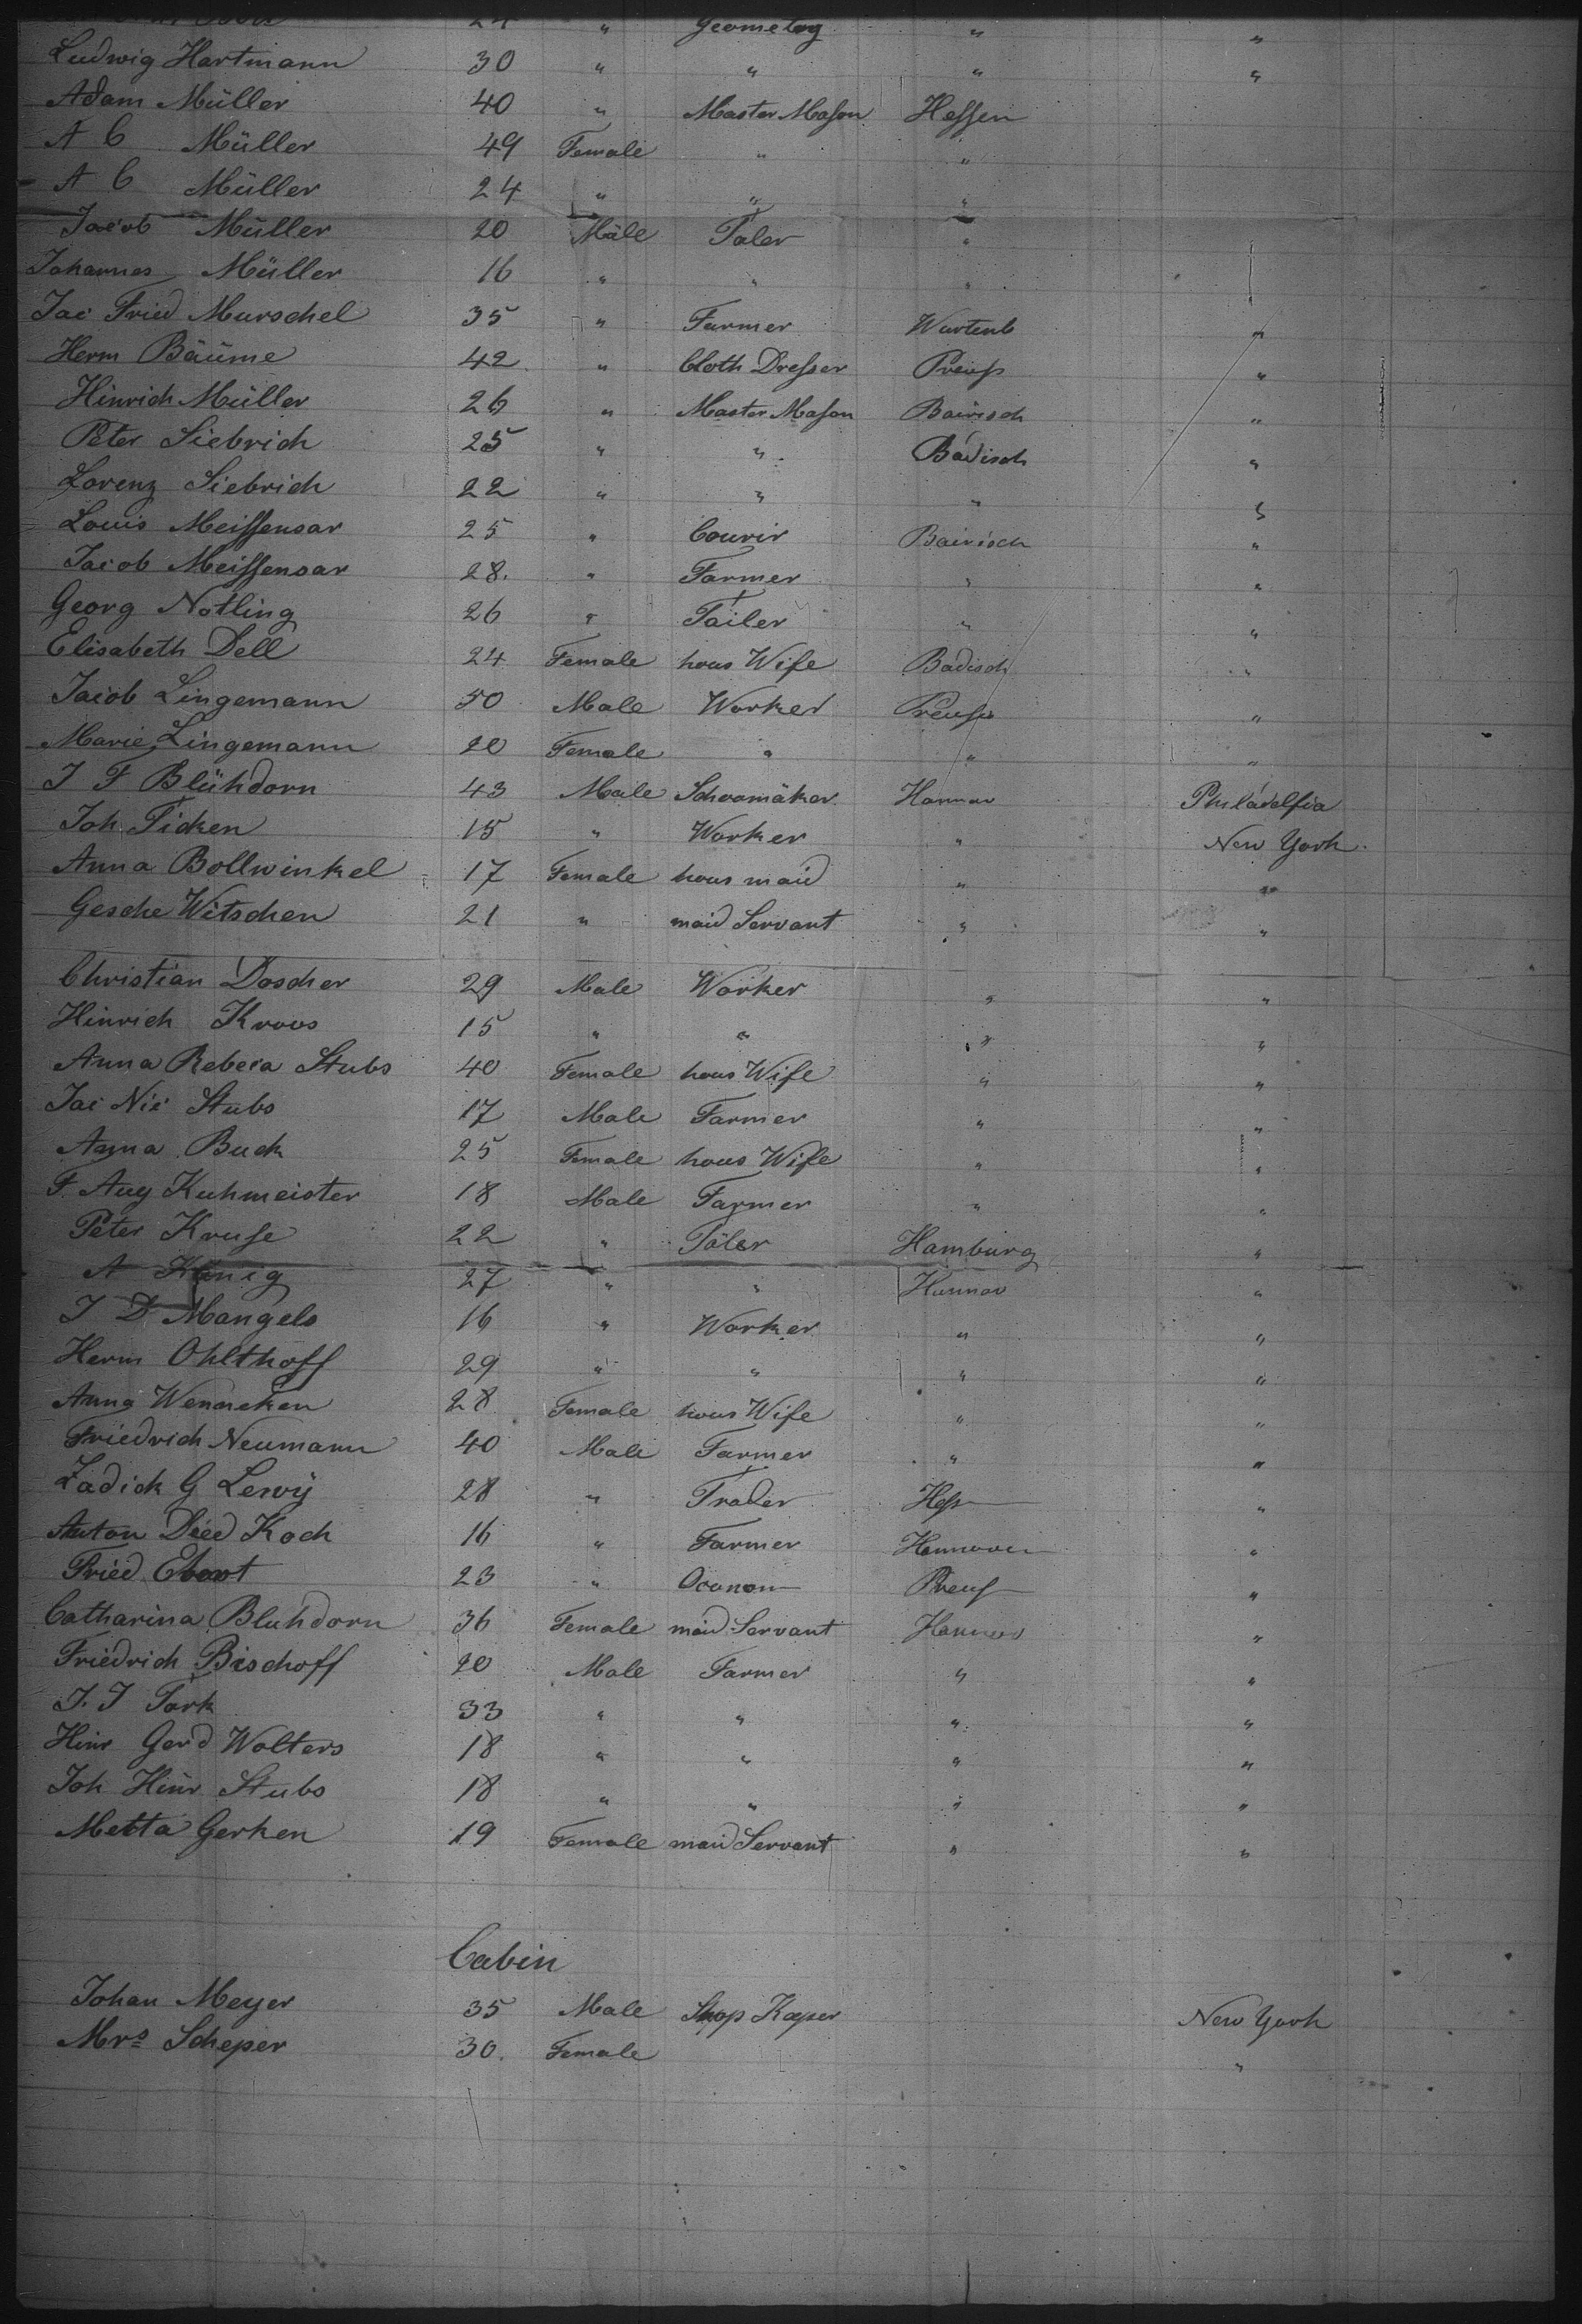 24 " Geometry " "
Ludwig Hartmann 30 " " " "
Adam Müller 40 " Master Mason Hessen
A C Müller 49 Female " "
A C Müller 24 " " "
Jacob Müller 20 Male Taler "
Johannes Müller 16 " " "
Jac Fried Murschel 35 " Farmer Wurtenb "
Herm Bäume 42 " Cloth Dresser Preuss "
Hinrich Müller 26 " Master Mason Bairisch "
Peter Siebrich 25 " " Badisch "
Lorenz Siebrich 22 " " " "
Louis Meissensar 25 " Courir Bairisch "
Jacob Meissensar 28. " Farmer " "
Georg Notling 26 " Tailer " "
Elisabeth Dell 24 Female hous Wife Badisch "
Jacob Lingemann 50 Male Worker Preuss "
Marie Lingemann 20 Female " " "
J F Blühdorn 43 Male Schoomaker Hannov Philadelfia
Joh Ficken 15 " Worker " New York
Anna Bollwinkel 17 Female hous maid " "
Gesche Witschen 21 " maid Servant " "
Christian Doscher 29 Male Worker " "
Hinrich Kroos 15 " " " "
Anna Rebeca Stubs 40 Female hous Wife " "
Jac Nic Stubs 17 Male Farmer " "
Anna Buck 25 Female hous Wife " "
F. Aug Kuhmeister 18 Male Farmer " "
Peter Kruse 22 " Taler Hamburg "
A König 27 " " Hannov "
J D Mangels 16 " Worker " "
Herm Ohlthoff 29 " " " "
Anna Wenneken 28 Female hous Wife " "
Friedrich Neumann 40 Male Farmer " "
Zadick G Levÿ 28 " Trader Hess "
Anton Died Koch 16 " Farmer Hannover "
Fried 23 " Oconom Preuss "
Catharina Bluhdorn 36 Female maid Servant Hannov "
Friedrich Bischoff 20 Male Farmer " "
J. J Tork 33 " " " "
Hinr Gerd Wolters 18 " " " "
Joh Hinr Stubs 18 " " " "
Metta Gerken 19 Female maid Servant " "
Cabin
Johan Meyer 35 Male Shop Keper New York
Mrs Scheper 30. Female "